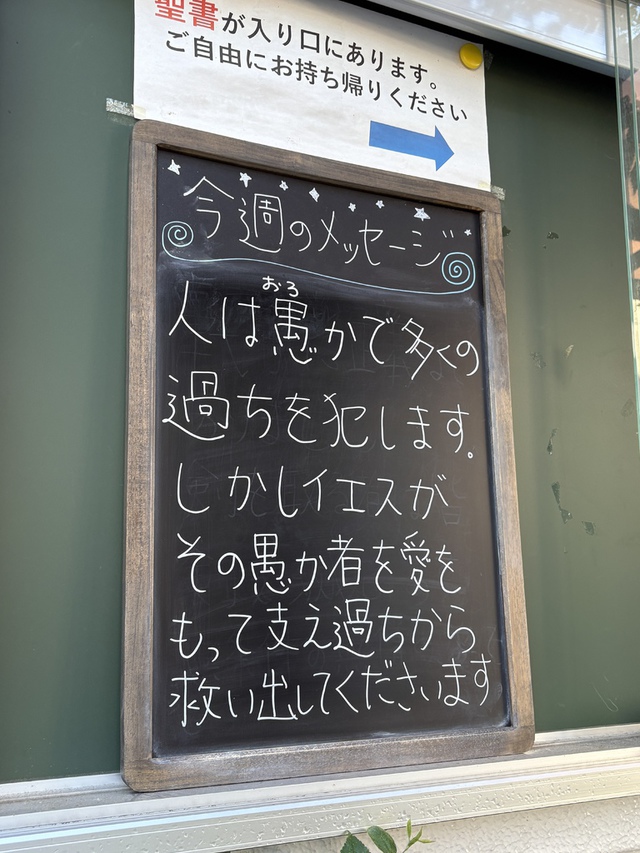 聖書が入り口にあります。
ご自由にお持ち帰りください
今週のメッセージ
おろ
人は愚かで多くの
過ちを犯します。
しかしイエスが
その愚か者を愛を
もって支え過ちから
救い出してくださいます